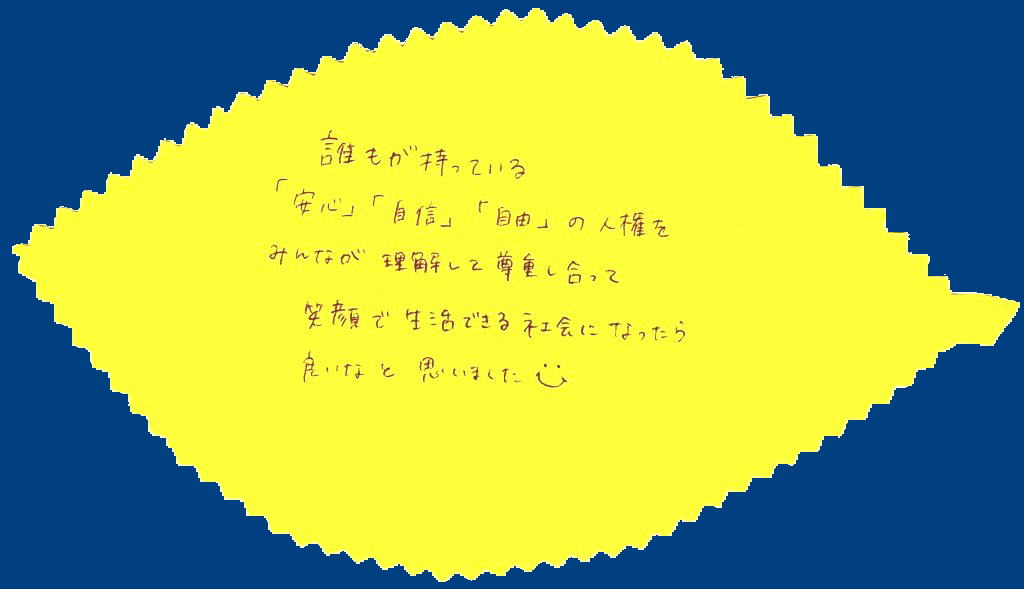 誰もが持っている
「安心」「自信」「自由」の人権を
みんなが理解して尊重し合って
笑顔で生活できる社会になったら
良いなと思いました